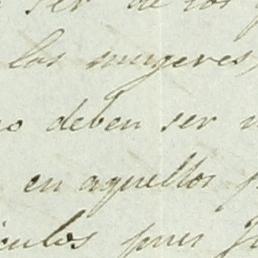 ser de los
las mugeres,
no deben ser
en aquellos
culos pues